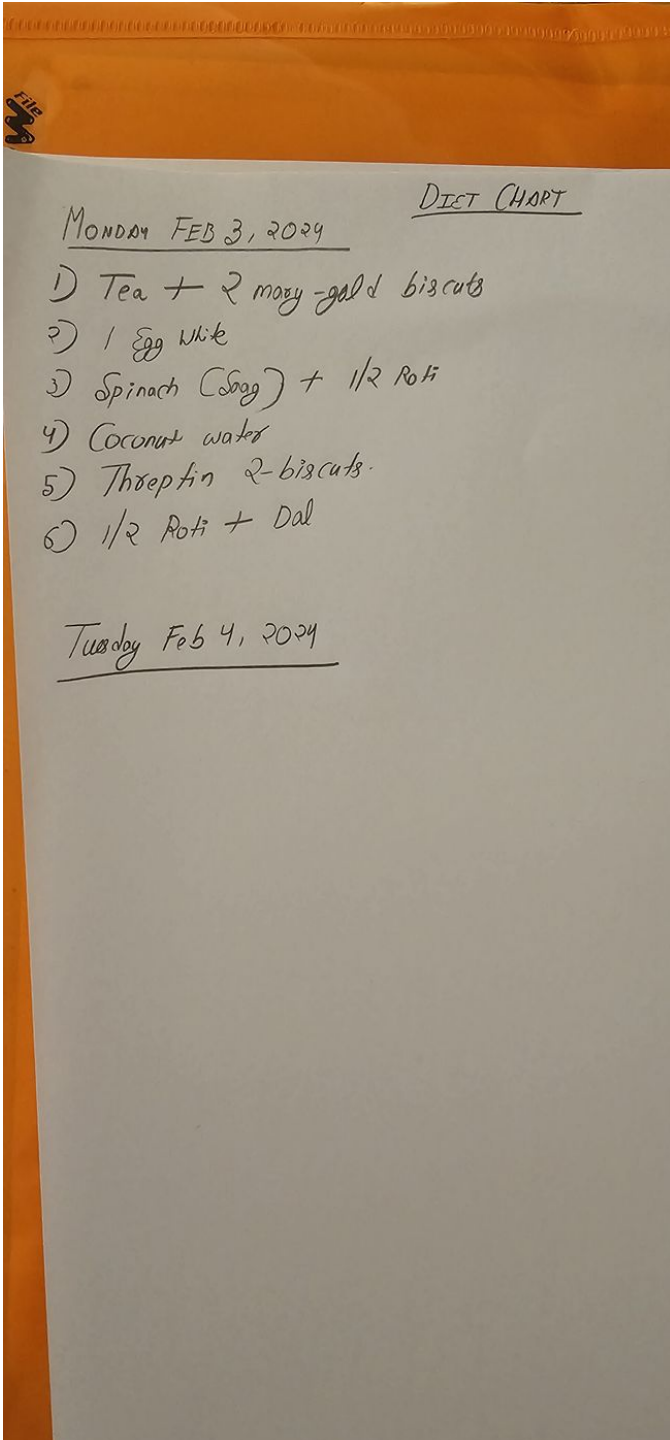 File
DIET CHART
MONDAY FEB 3, 2024
1) Tea + 2 mary-gold biscuts
2) 1 Egg White
3) Spinach (Saag) + 1/2 Roti
4) Coconut water
5) Threptin 2-biscuts.
6) 1/2 Roti + Dal
Tuesday Feb 4, 2024